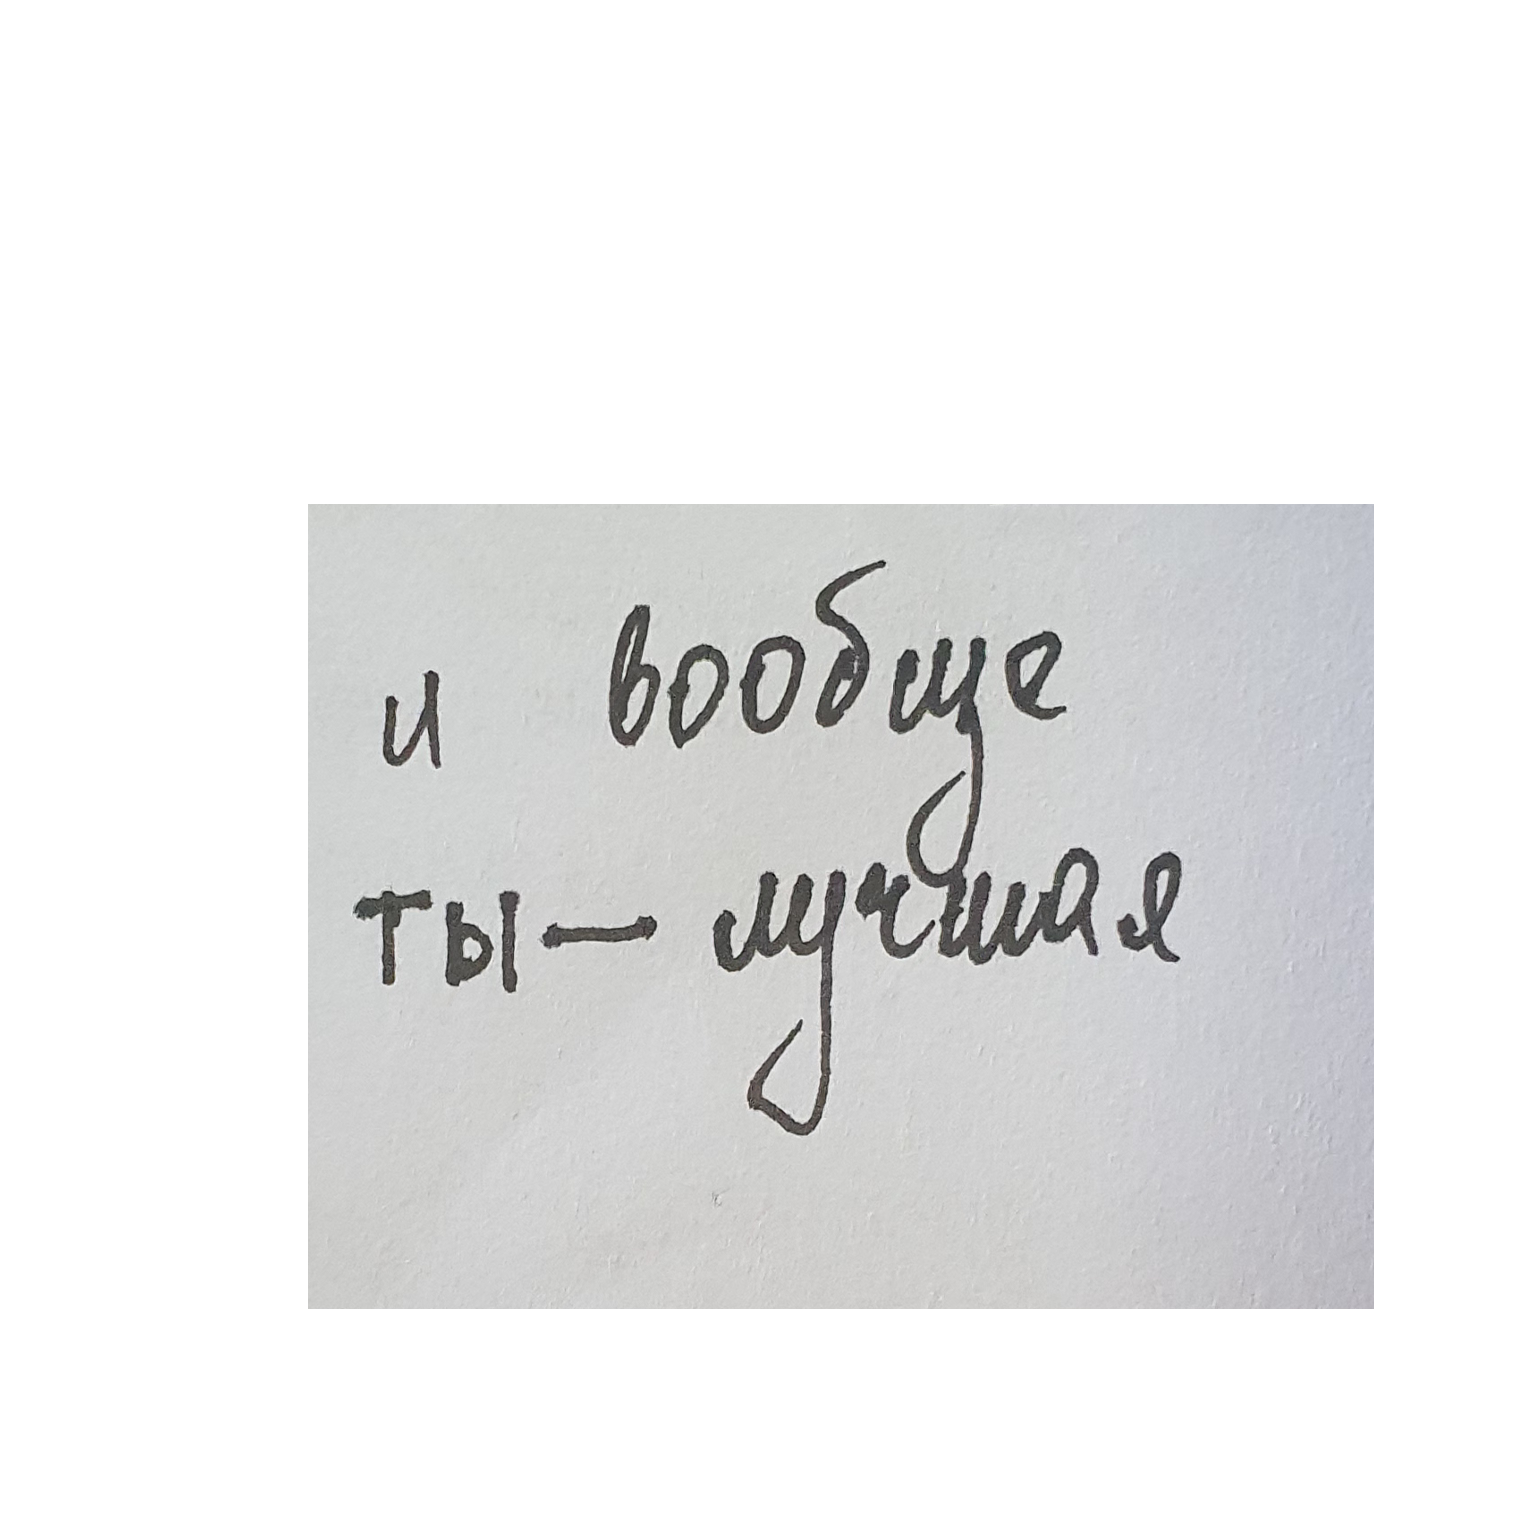 и вообще
ты — лучшая